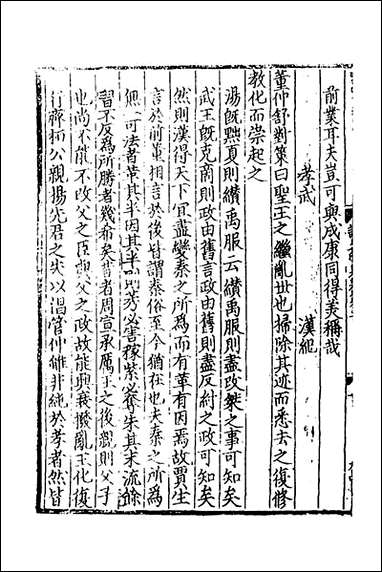 前業耳夫豈可與成康同得美稱哉
孝武 漢紀
董仲舒對策曰聖王之繼亂世也掃除其迹而悉去之復修
教化而崇起之
湯旣黜夏則纘禹服云纘禹服則盡改桀之事可知矣
武王旣克商則政由舊言政由舊則盡反紂之政可知矣
然則漢得天下宜盡變秦之所為而有革有因焉故賈生
言於前董相言於後皆謂秦俗至今猶在也夫秦之所為
無一可法者革其半因其半則莠必害稼紫必奪朱其末流餘
習不反為所勝者幾希矣昔者周宣承厲王之後親則父子
也尚不能不改父之臣與父之政故能興衰撥亂王化復
行齊桓公親揚先君之失以誥管仲雖非純於孝者然皆